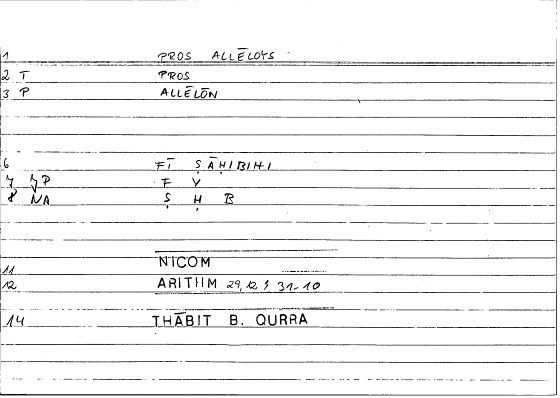 1 PROS ALLĒLOYS
2 T PROS
3 P ALLĒLŌN
6 FĪ ṢĀḤIBIHI
7 JP F Y
8 NA Ṣ Ḥ B
11 NICOM
12 ARITHM 29,12 ; 31-10
14 THĀBIT B. QURRA